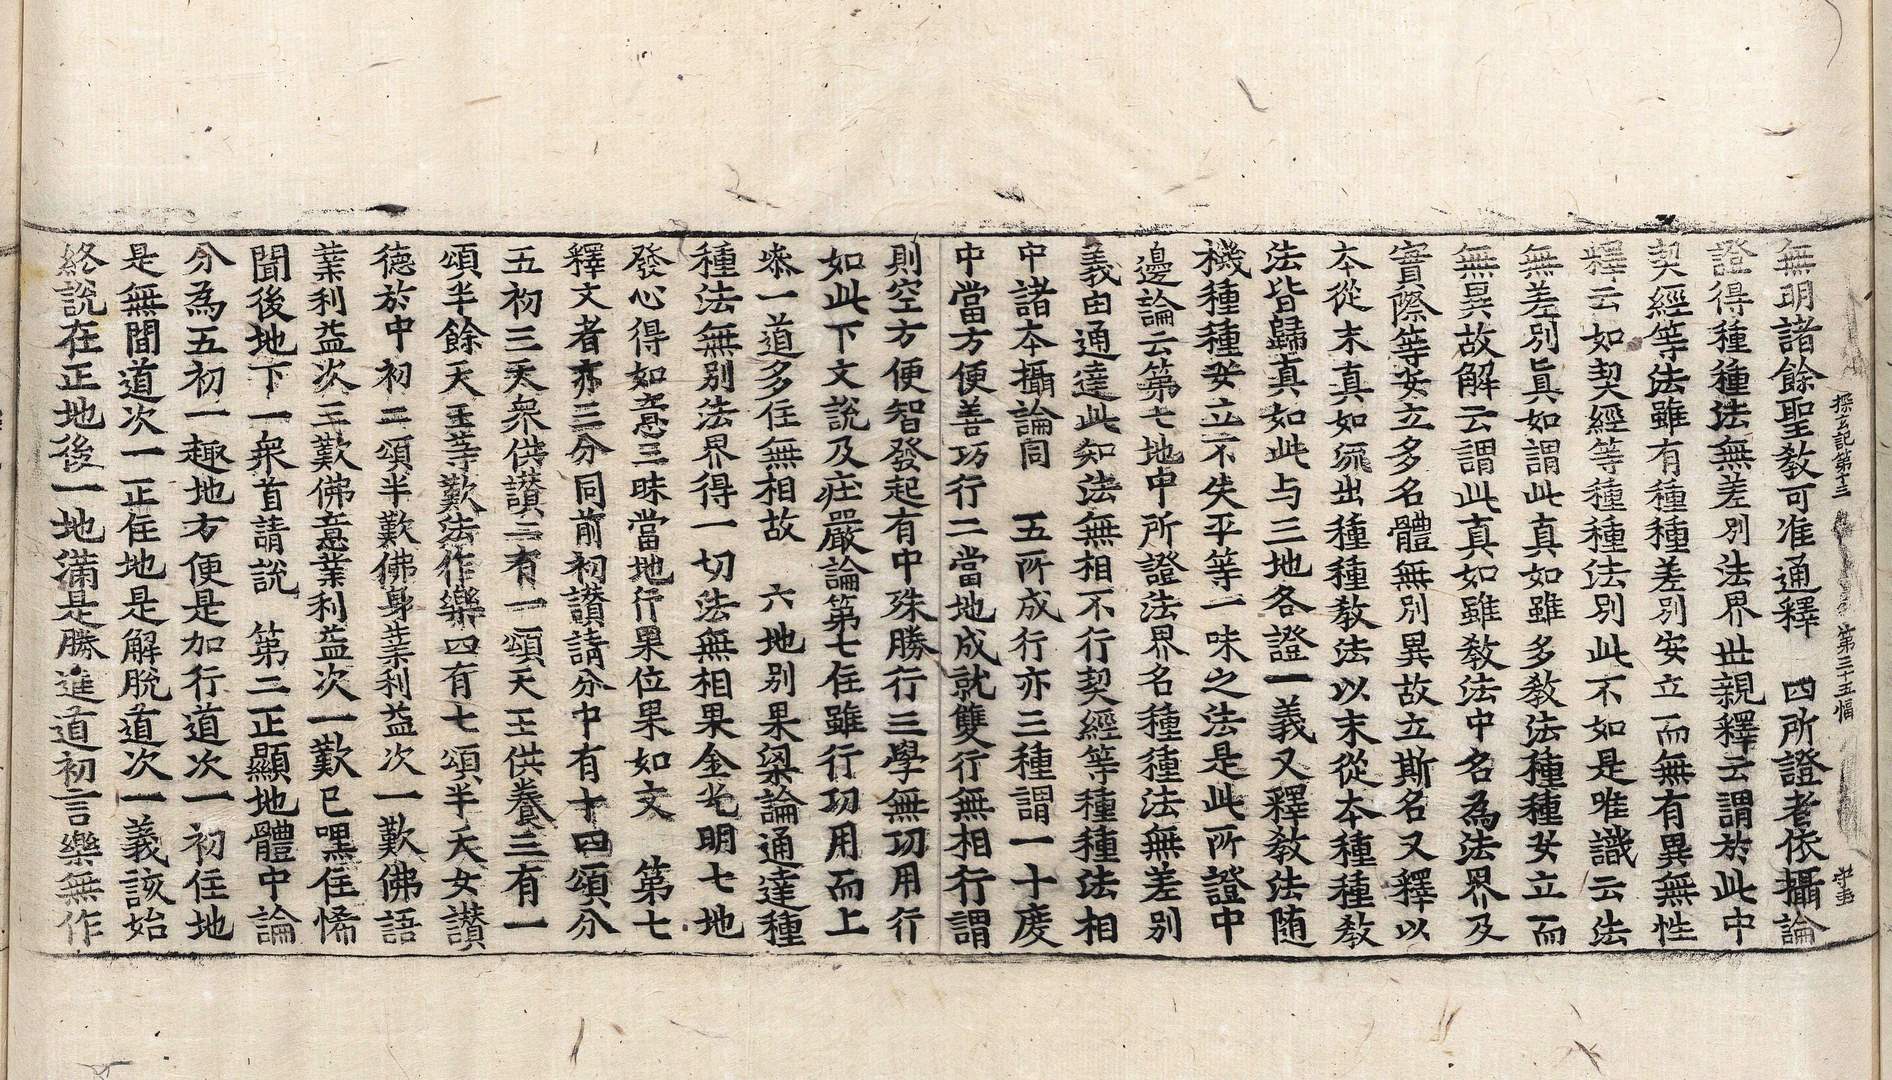 探玄記第十三 第三十五幅 守岳
無明諸餘聖教可准通釋　四所證者依攝論
證得種種法無差別法界世親釋云謂於此中
契經等法雖有種種差別安立而無有異無性
釋云如契經等種種法別此不如是唯識云法
無差別真如謂此真如雖多教法種種安立而
無異故解云謂此真如雖教法中名為法界及
實際等安立多名體無別異故立斯名又釋以
本從末真如流出種種教法以末從本種種教
法皆歸真如此与三地各證一義又釋教法随
機種種安立不失平等一味之法是此所證中
邊論云第七地中所證法界名種種法無差別
義由通達此知法無相不行契經等種種法相
中諸本攝論同　五所成行亦三種謂一十度
中當方便善巧行二當地成就雙行無相行謂
則空方便智發起有中殊勝行三學無功用行
如此下文說及莊嚴論第七住雖行功用而上
叅一道多住無相故　六地别果梁論通達種
種法無別法界得一切法無相果金光明七地
發心得如意三昧當地行果位果如文　第七
釋文者亦三分同前初讃請分中有十四頌分
五初三天衆供讃二有一頌天王供養三有一
頌半餘天王等歎法作樂四有七頌半天女讃
德於中初二頌半歎佛身業利益次一歎佛語
業利益次三歎佛意業利益次一歎已嘿住悕
聞後地下一衆首請說　第二正顯地體中論
分為五初一趣地方便是加行道次一初住地
是無間道次一正住地是解脫道次一義該始
終說在正地後一地滿是勝進道初言樂無作